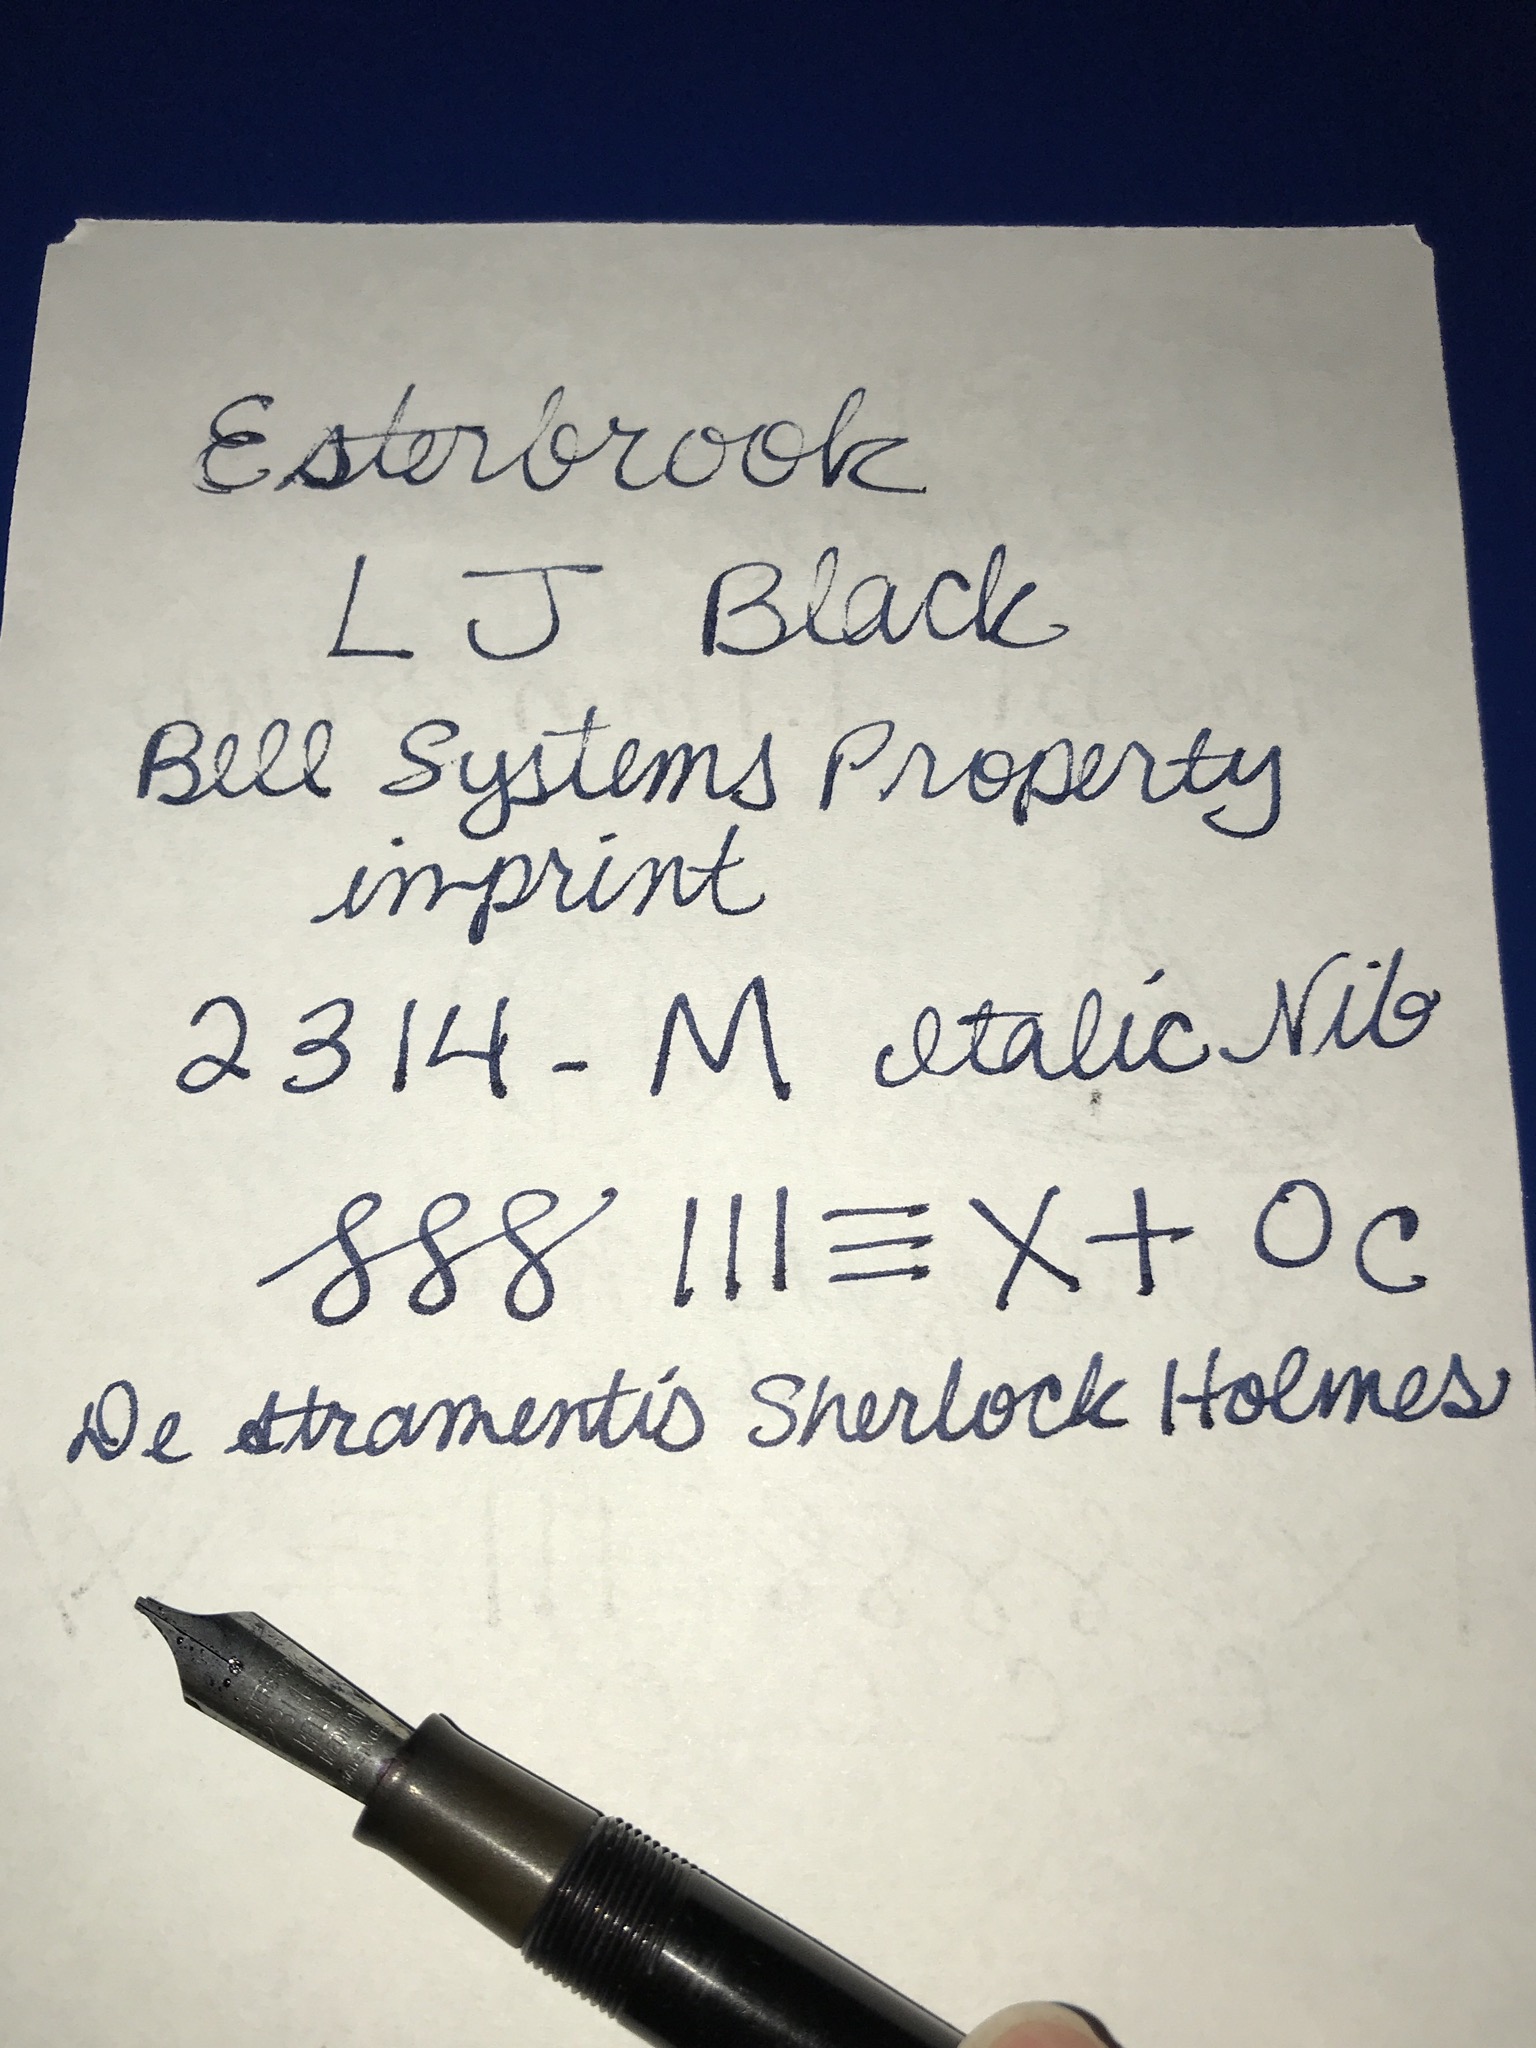 Esterbrook
L J Black
Bell Systems Property
imprint
2314 - M Italic Nib
888 III ≡ X + O C
De Atramentis Sherlock Holmes